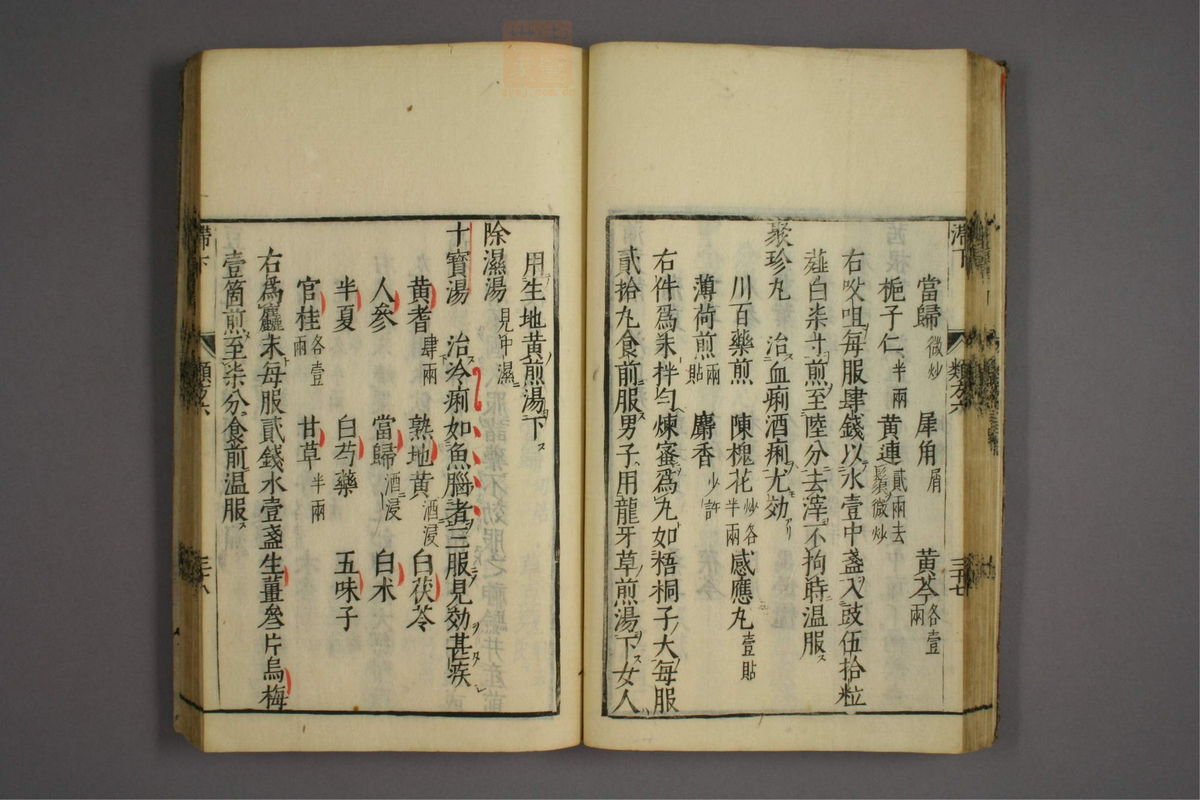 當歸微炒 犀角屑 黄芩各壹兩
梔子仁半兩 黄連貳兩去鬚微炒
右㕮咀每服肆錢以水壹中盞入豉伍拾粒
薤白柒寸煎至陸分去滓不拘時温服
聚珍丸 治血痢酒痢尤効
川百藥煎 陳槐花炒各半兩 感應丸壹貼
薄荷煎兩貼 麝香少許
右件爲末拌匀煉蜜爲丸如梧桐子大每服
貳拾丸食前服男子用龍牙草煎湯下女人
滯下 類方六 三十七
用生地黄煎湯下
除濕湯見中濕
十寳湯 治冷痢如魚腦者三服見効甚疾
黄耆肆兩 熟地黄酒浸 白茯苓
人參 當歸酒浸 白术
半夏 白芍藥 五味子
官桂各壹兩 甘草半兩
右爲麤末每服貳錢水壹盞生薑叄片烏梅
壹箇煎至柒分食前温服
滯下 類方六 三十八